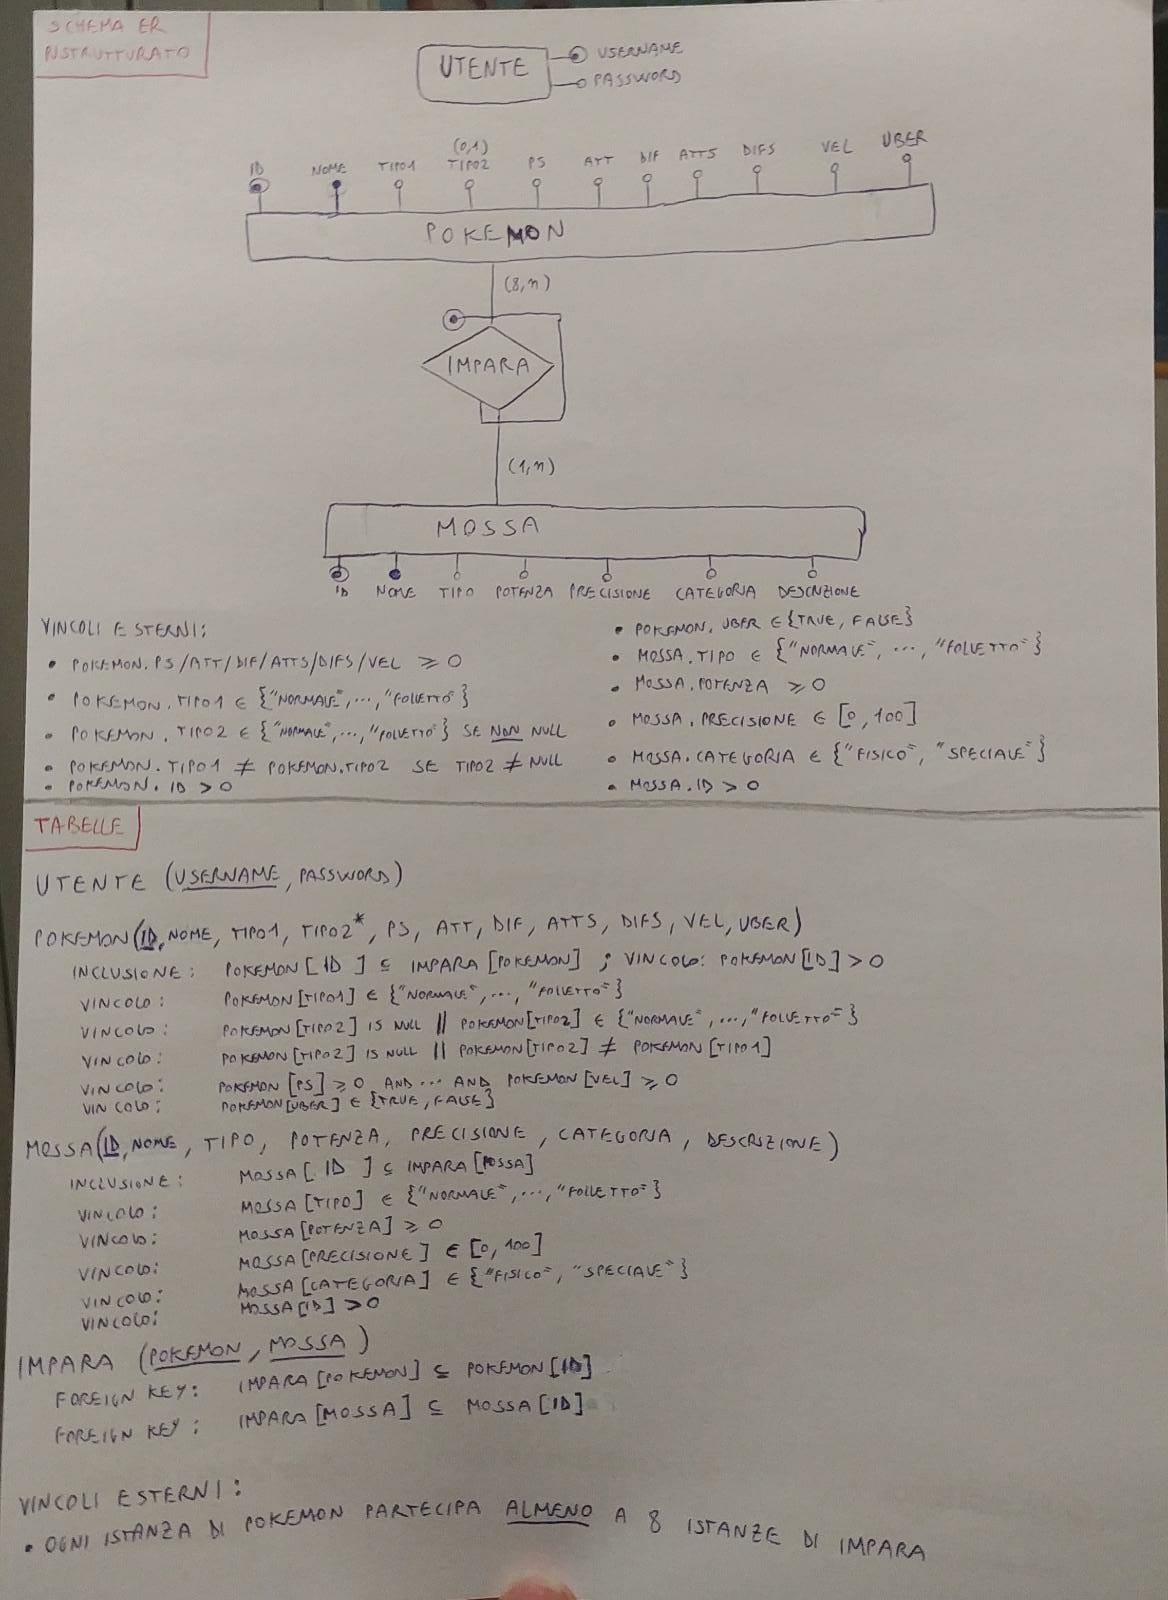 SCHEMA ER
RISTRUTTURATO
UTENTE
USERNAME
PASSWORD
ID NOME TIPO1 (0,1) TIPO2 PS ATT DIF ATTS DIFS VEL UBER
POKEMON
(8,n)
IMPARA
(1,n)
MOSSA
ID NOME TIPO POTENZA PRECISIONE CATEGORIA DESCRIZIONE
VINCOLI ESTERNI:
• POKEMON.PS/ATT/DIF/ATTS/DIFS/VEL ⩾ 0
• POKEMON.TIPO1 ∈ {"NORMALE", ..., "FOLLETTO"}
• POKEMON.TIPO2 ∈ {"NORMALE", ..., "FOLLETTO"} SE NON NULL
• POKEMON.TIPO1 ≠ POKEMON.TIPO2 SE TIPO2 ≠ NULL
• POKEMON.ID > 0
• POKEMON.UBER ∈ {TRUE, FALSE}
• MOSSA.TIPO ∈ {"NORMALE", ..., "FOLLETTO"}
• MOSSA.POTENZA ⩾ 0
• MOSSA.PRECISIONE ∈ [0, 100]
• MOSSA.CATEGORIA ∈ {"FISICO", "SPECIALE"}
• MOSSA.ID > 0
TABELLE
UTENTE (USERNAME, PASSWORD)
POKEMON(ID, NOME, TIPO1, TIPO2*, PS, ATT, DIF, ATTS, DIFS, VEL, UBER)
INCLUSIONE: POKEMON[ID] ⊆ IMPARA[POKEMON] ; VINCOLO: POKEMON[ID] > 0
VINCOLO: POKEMON[TIPO1] ∈ {"NORMALE", ..., "FOLLETTO"}
VINCOLO: POKEMON[TIPO2] IS NULL || POKEMON[TIPO2] ∈ {"NORMALE", ..., "FOLLETTO"}
VINCOLO: POKEMON[TIPO2] IS NULL || POKEMON[TIPO2] ≠ POKEMON[TIPO1]
VINCOLO: POKEMON[PS] ⩾ 0 AND ... AND POKEMON[VEL] ⩾ 0
VINCOLO: POKEMON[UBER] ∈ {TRUE, FALSE}
MOSSA(ID, NOME, TIPO, POTENZA, PRECISIONE, CATEGORIA, DESCRIZIONE)
INCLUSIONE: MOSSA[ID] ⊆ IMPARA[MOSSA]
VINCOLO: MOSSA[TIPO] ∈ {"NORMALE", ..., "FOLLETTO"}
VINCOLO: MOSSA[POTENZA] ⩾ 0
VINCOLO: MOSSA[PRECISIONE] ∈ [0, 100]
VINCOLO: MOSSA[CATEGORIA] ∈ {"FISICO", "SPECIALE"}
VINCOLO: MOSSA[ID] > 0
IMPARA (POKEMON, MOSSA)
FOREIGN KEY: IMPARA[POKEMON] ⊆ POKEMON[ID]
FOREIGN KEY: IMPARA[MOSSA] ⊆ MOSSA[ID]
VINCOLI ESTERNI:
• OGNI ISTANZA DI POKEMON PARTECIPA ALMENO A 8 ISTANZE DI IMPARA